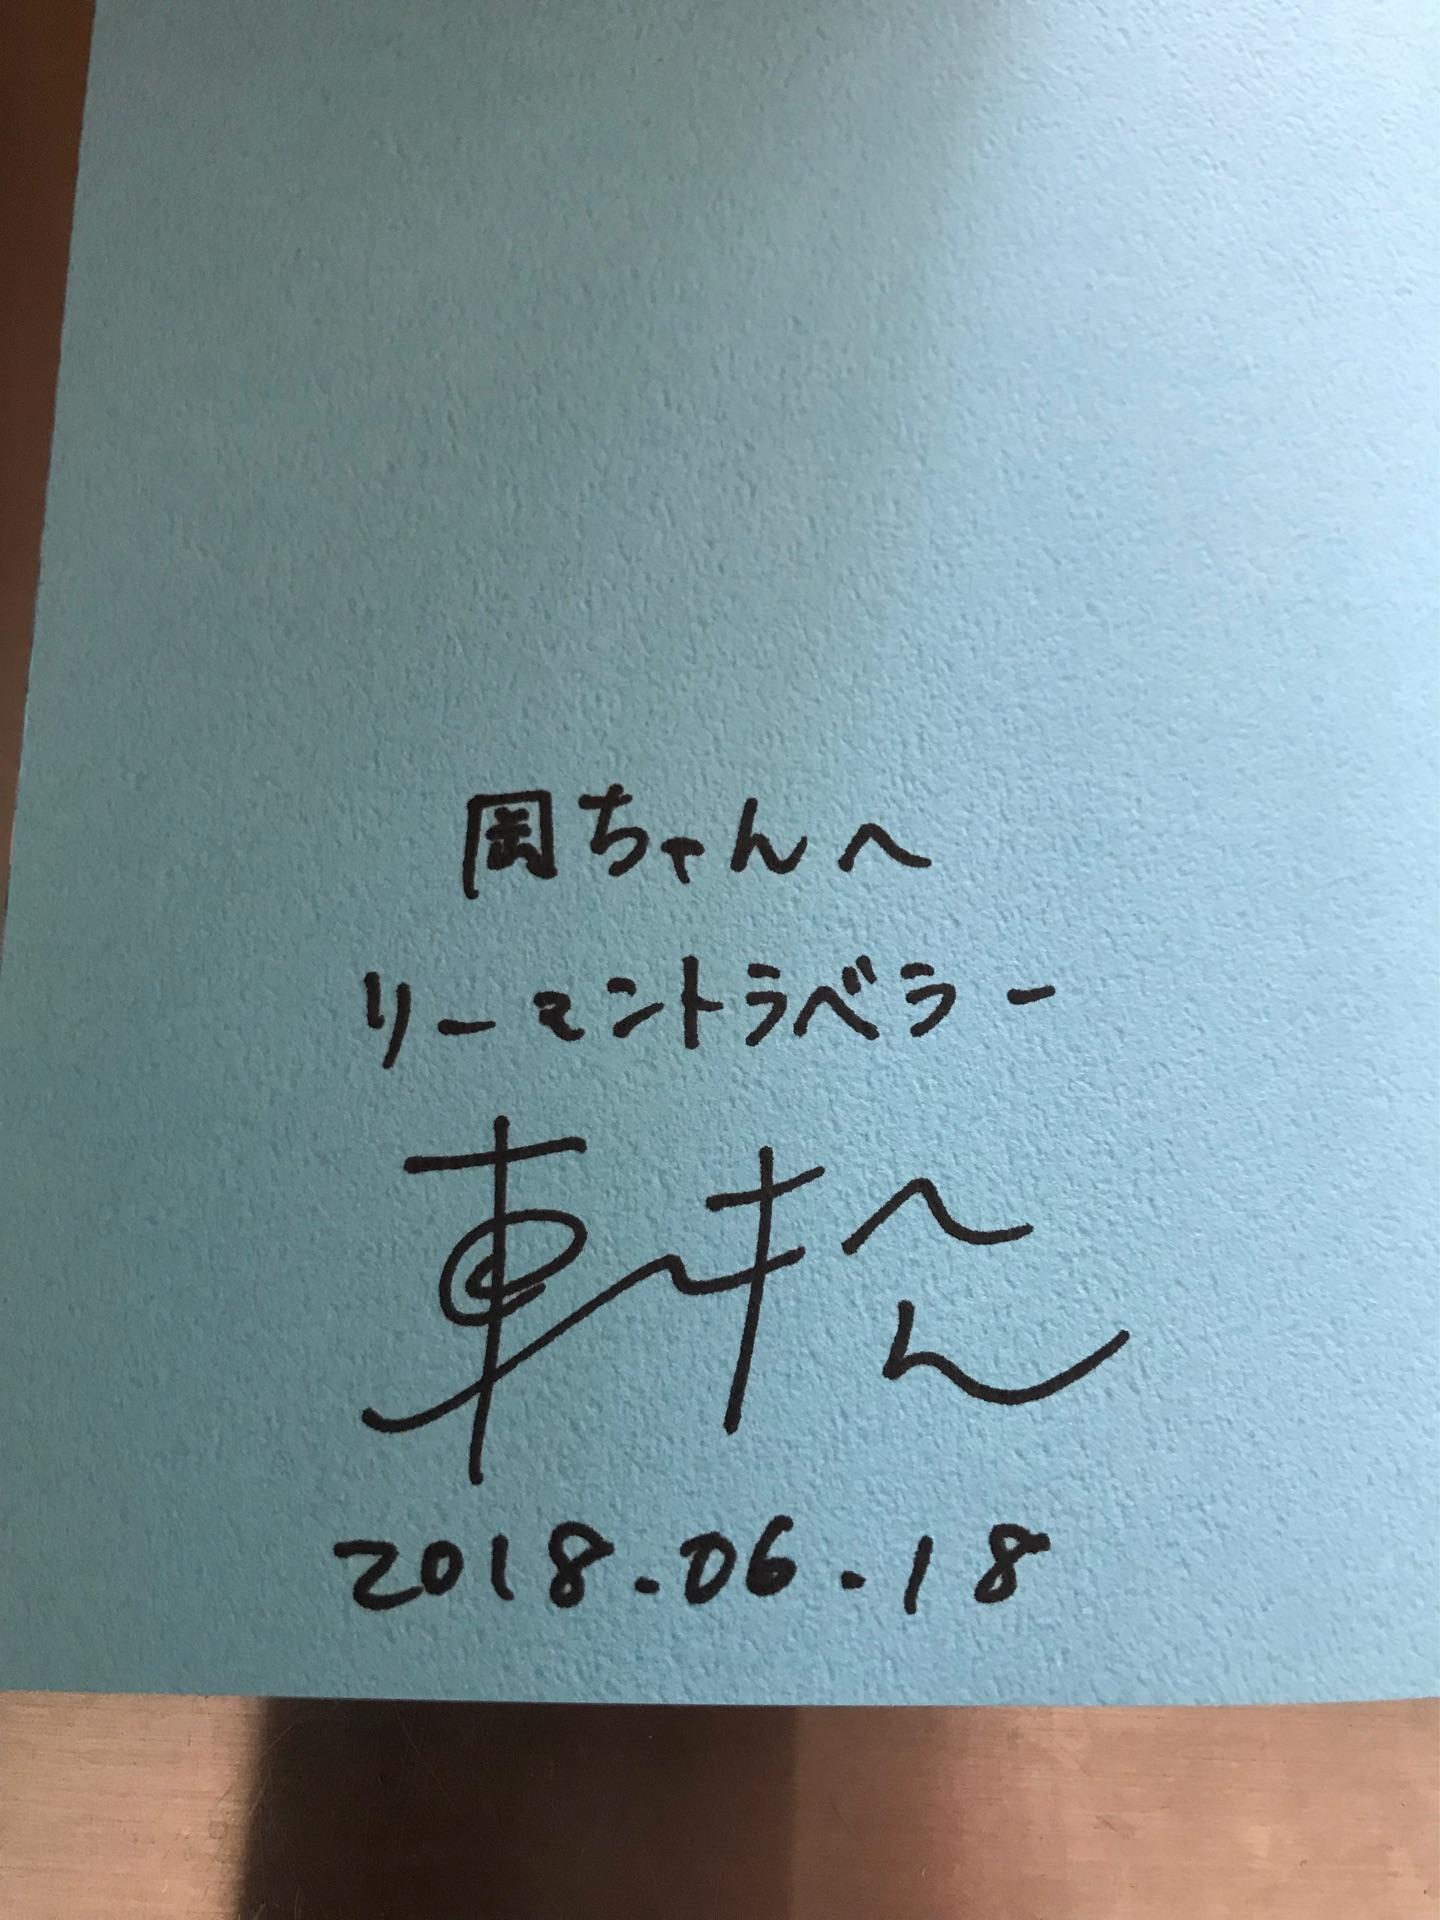 岡ちゃんへ
リーマントラベラー
東松
2018.06.18